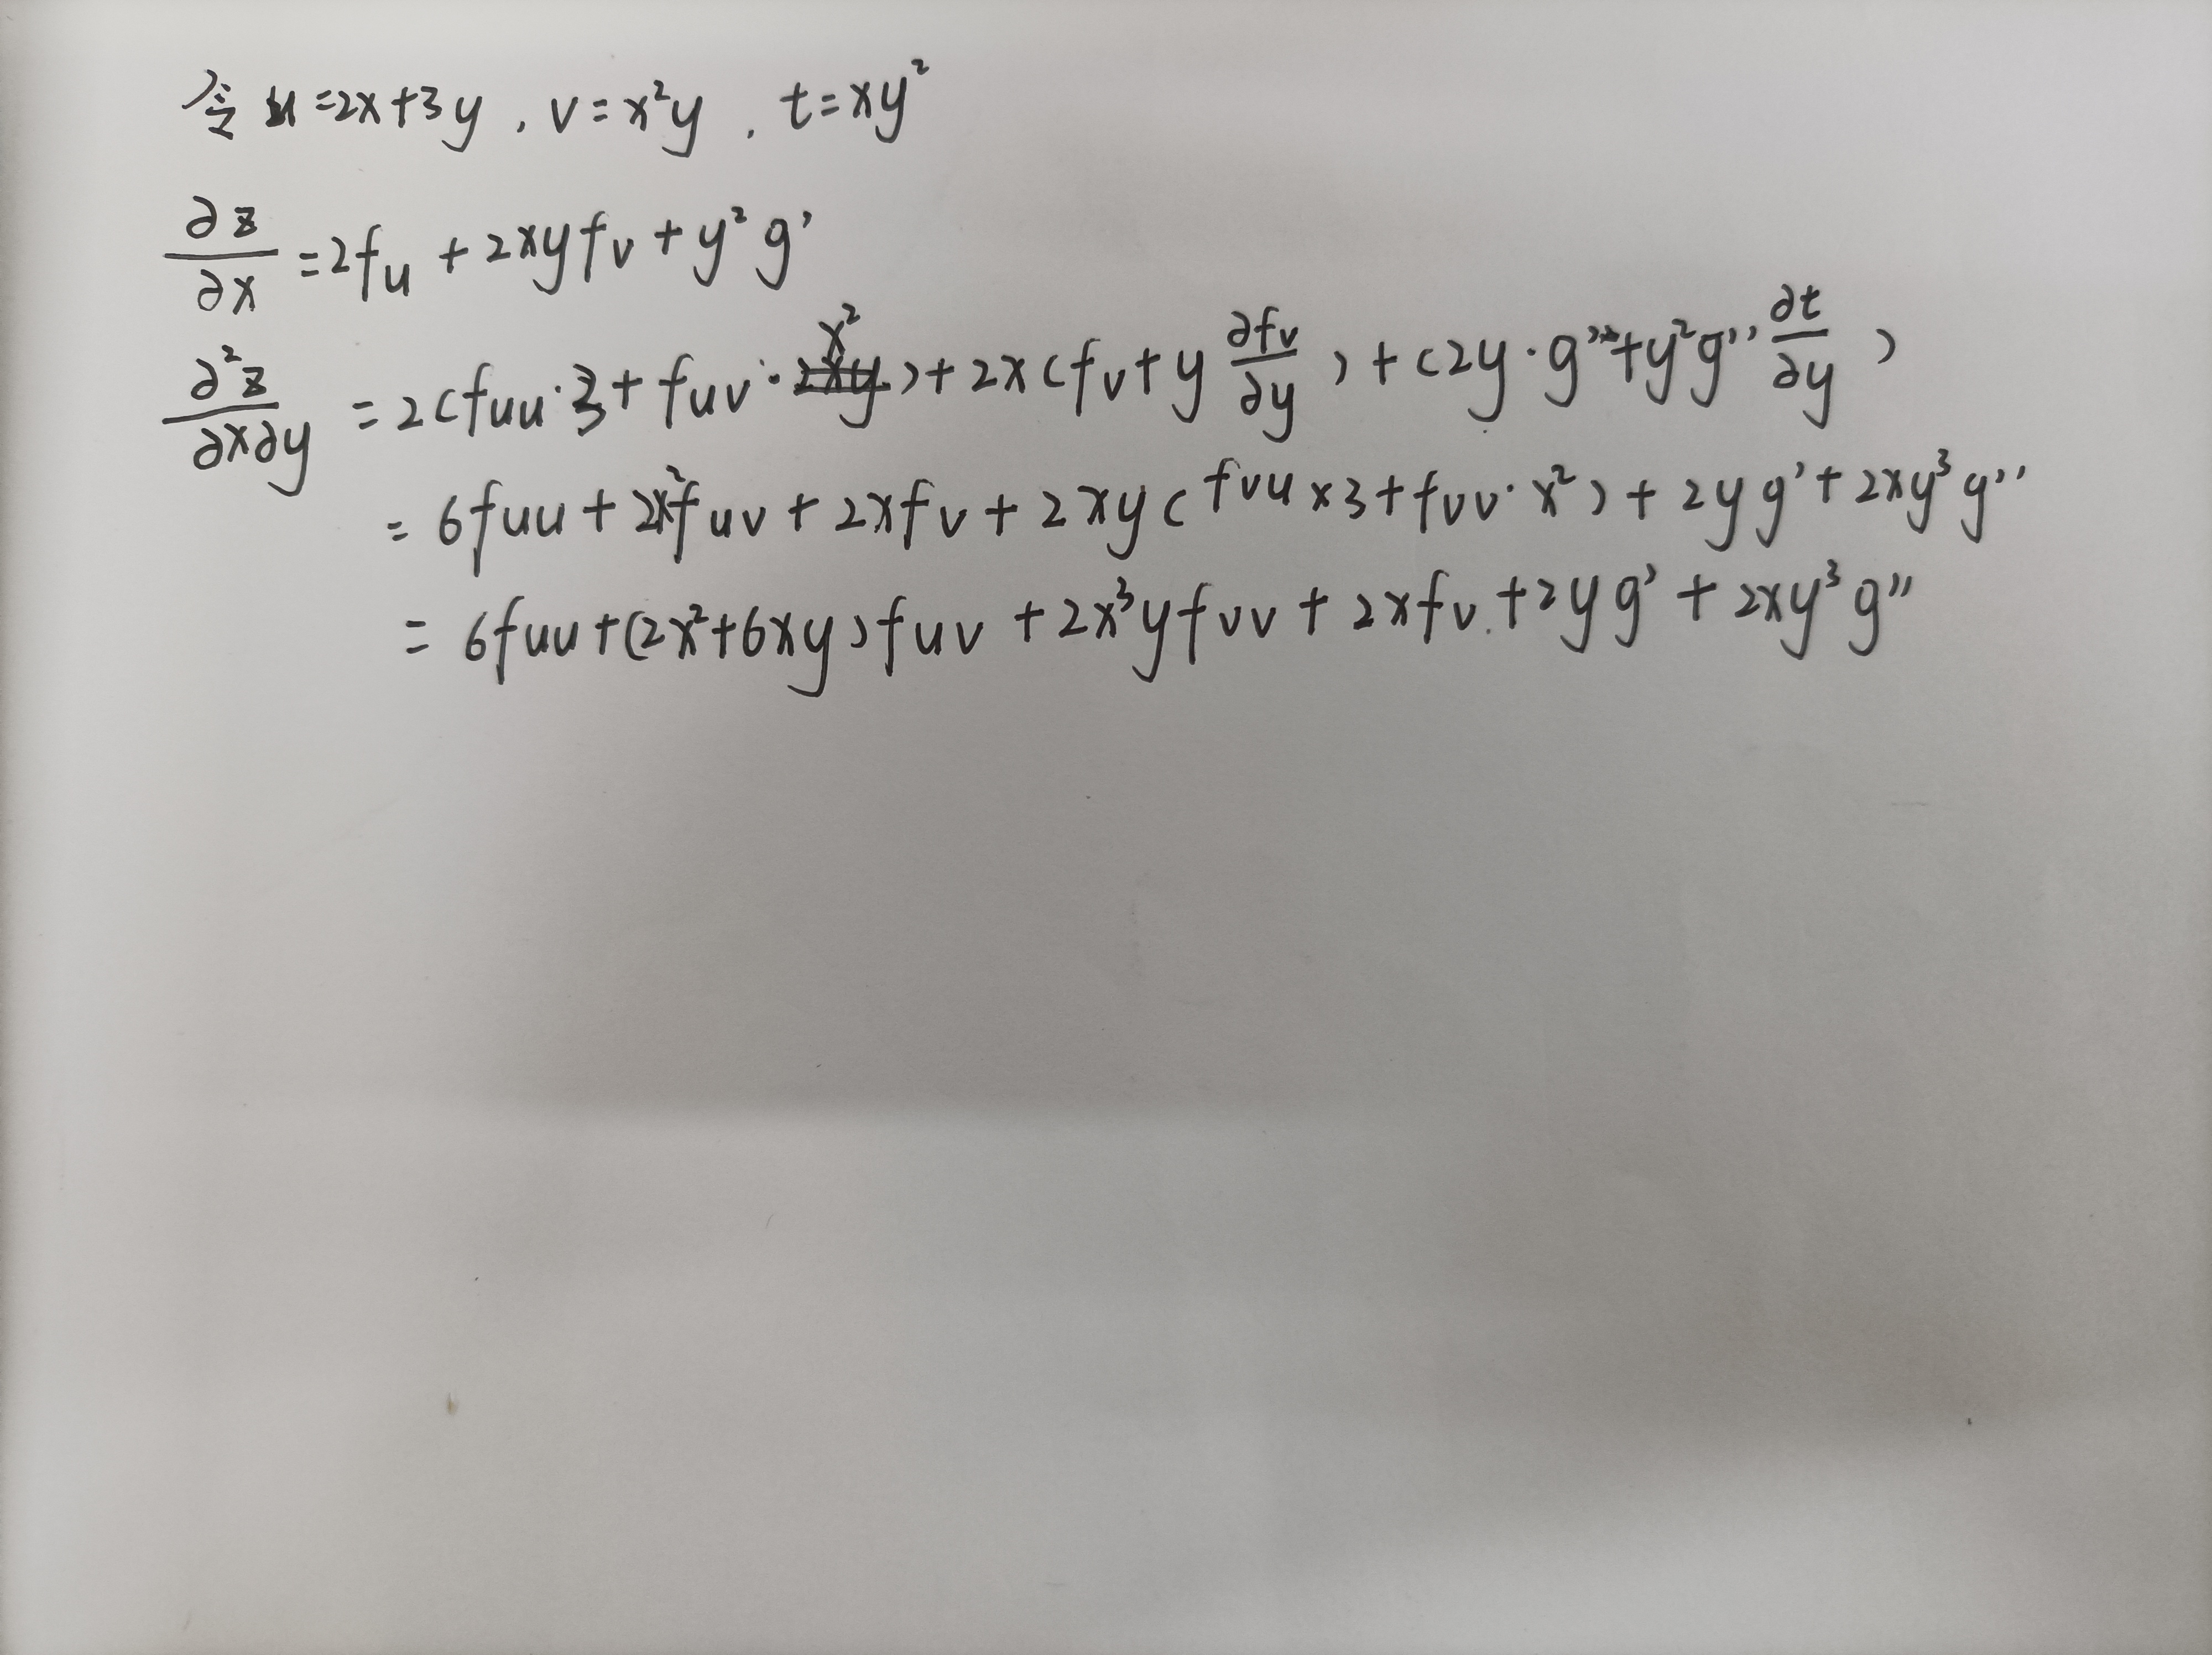 令 u=2x+3y, v=x²y, t=xy²
∂z/∂x = 2fu + 2xyfv + y²g'
∂²z/∂x∂y = 2(fuu·3 + fuv·x²) + 2x(fv + y ∂fv/∂y) + (2y·g' + y²g'' ∂t/∂y)
= 6fuu + 2x²fuv + 2xfv + 2xy(fvu×3 + fvv·x²) + 2yg' + 2xy³g''
= 6fuu + (2x²+6xy)fuv + 2x³yfvv + 2xfv + 2yg' + 2xy³g''